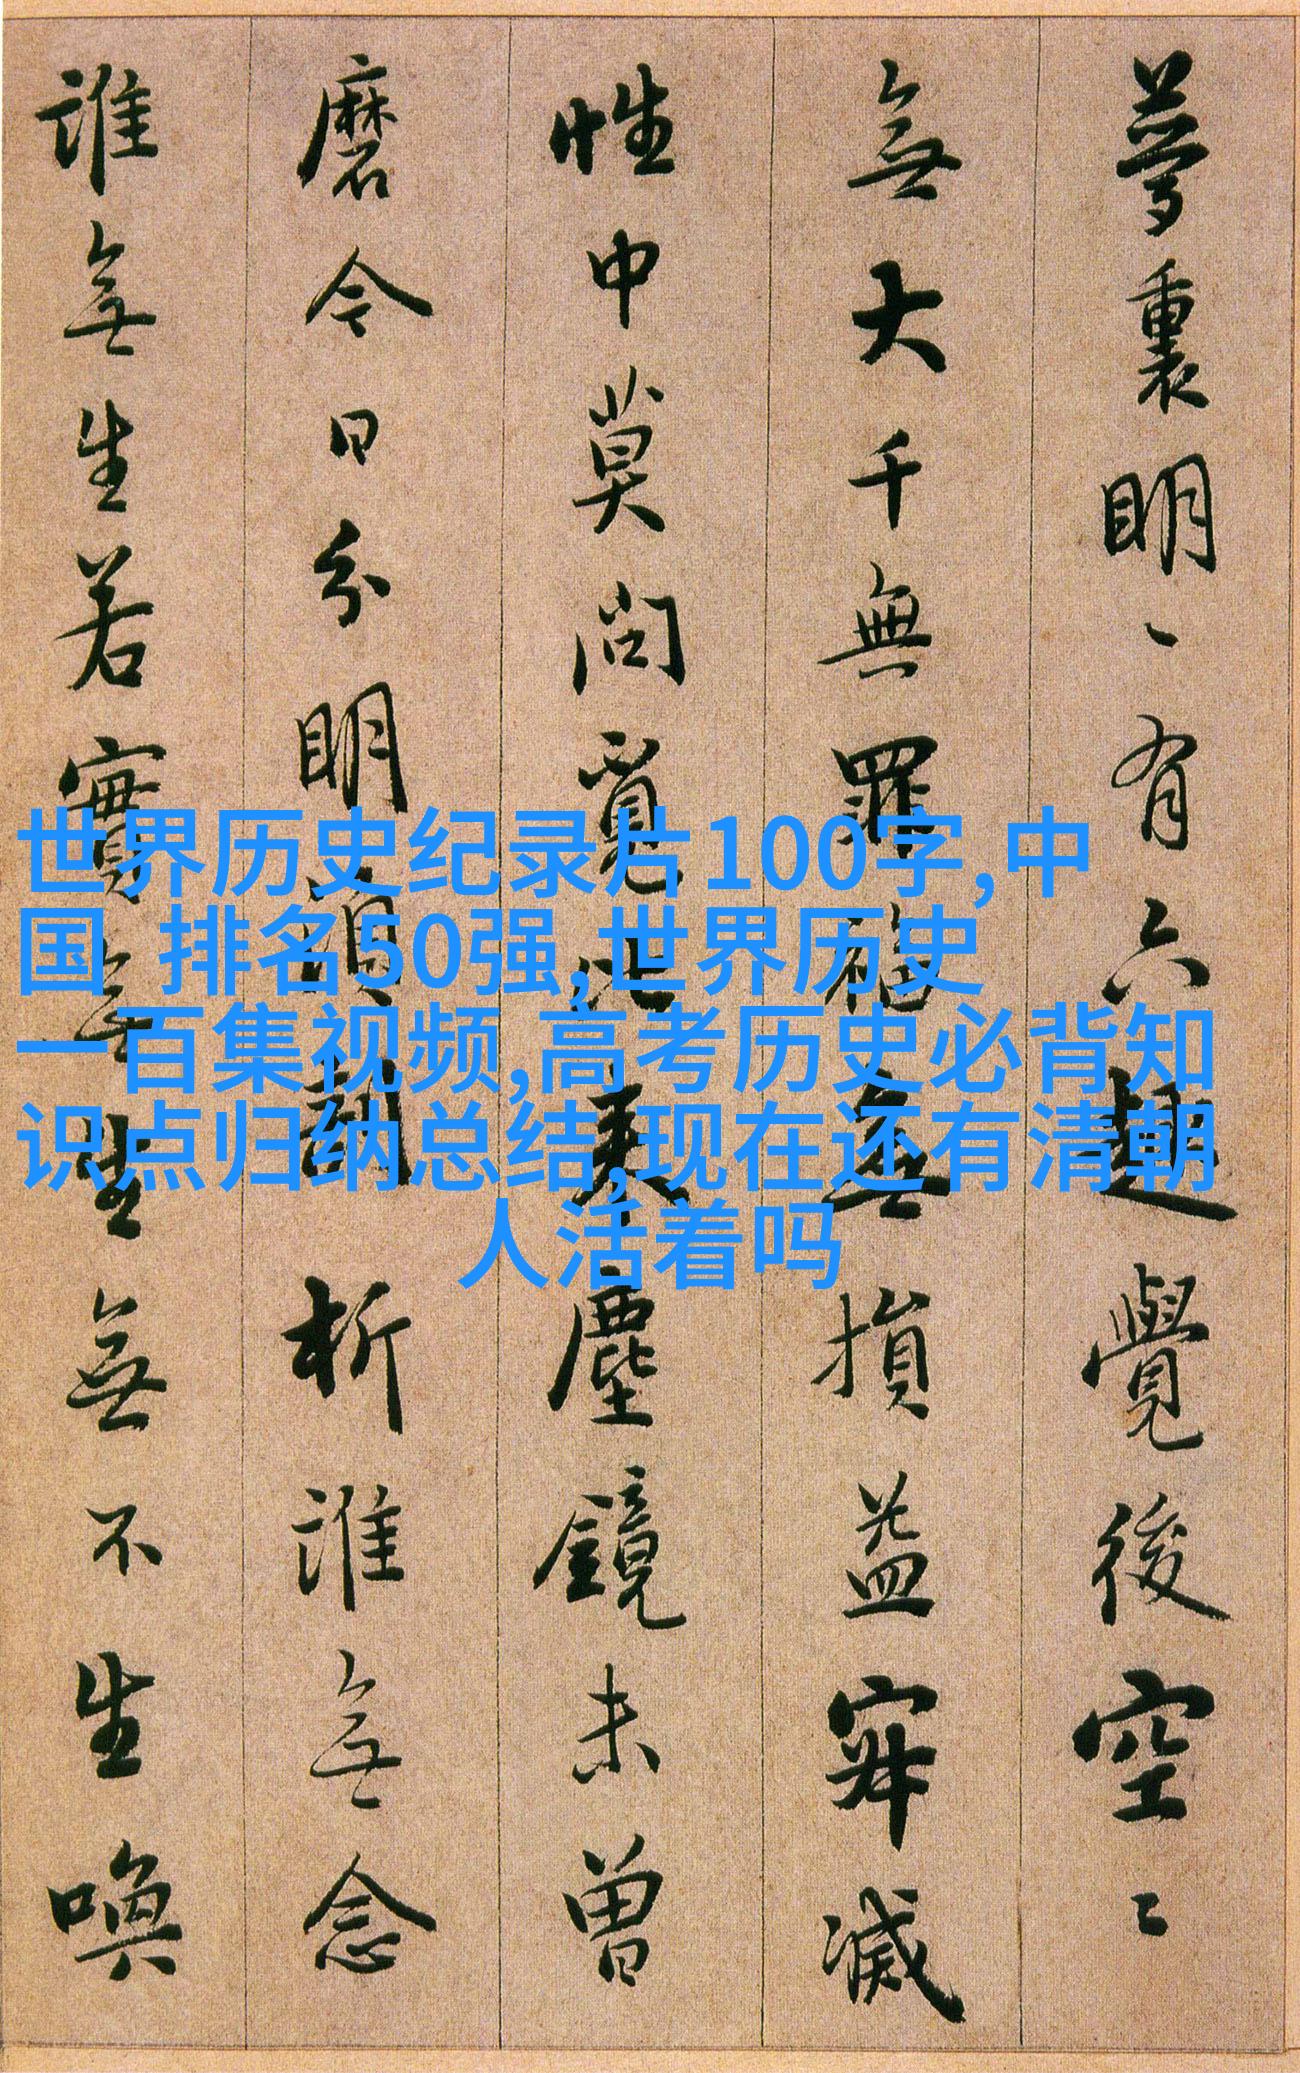 夢裏明〻有六趣覺後空〻
無大千無罪福無損益寂滅
性中莫問覓比来塵鏡未曾
磨今日分明須剖析誰無念
誰無生若實無生無不生喚
世界历史纪录片100字,中
国 排名50强,世界历史
一百集视频,高考历史必背知
识点归纳总结,现在还有清朝
人活着吗